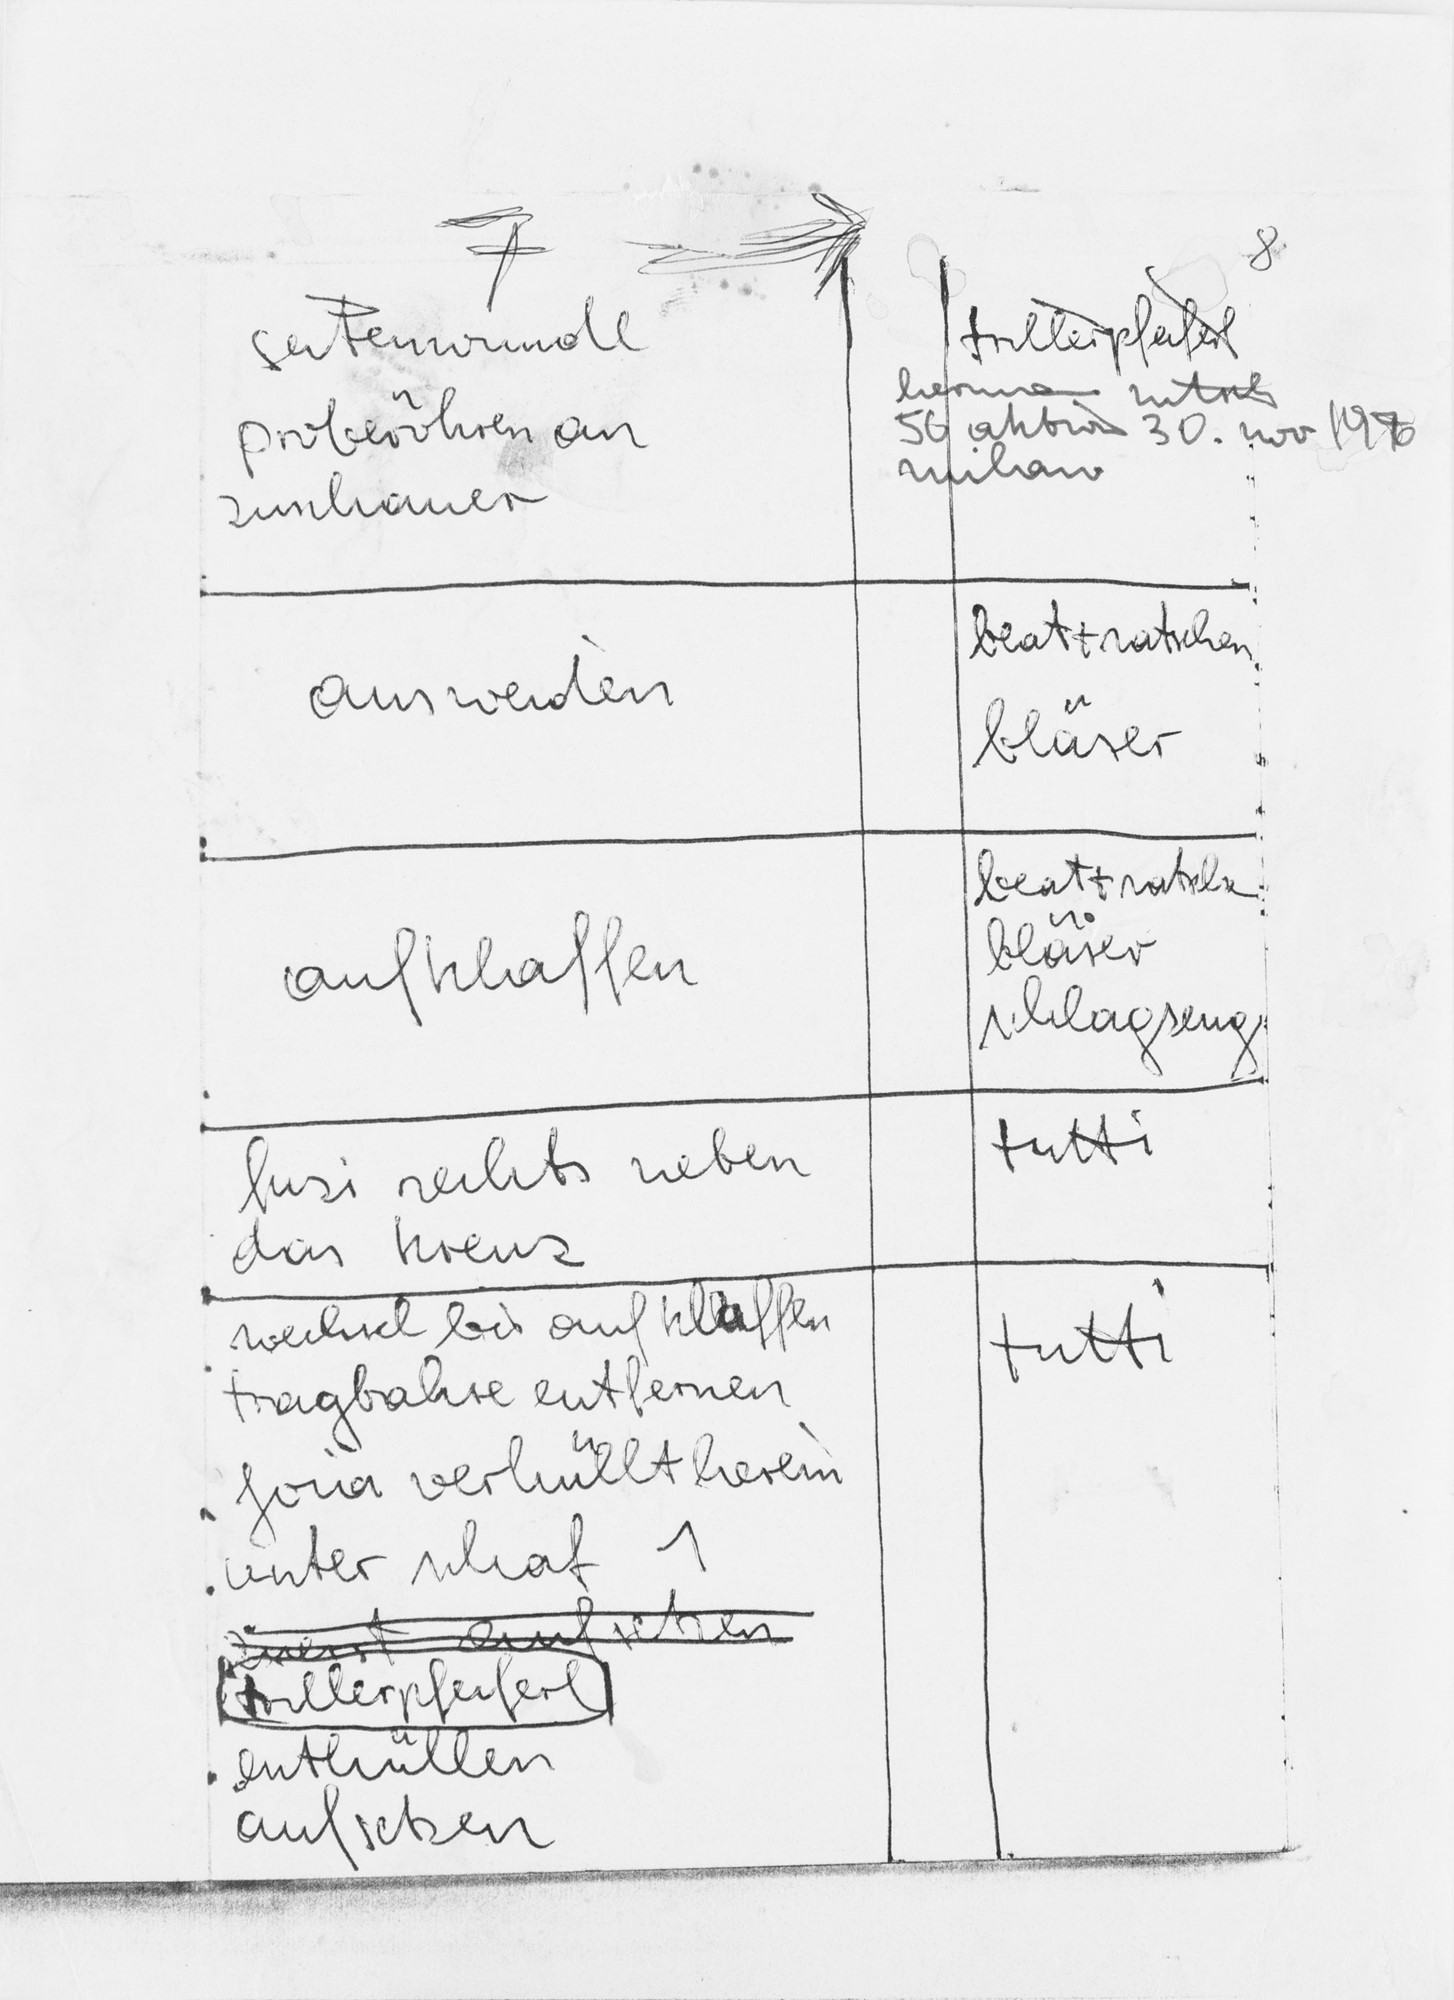 7
8
seitenwunde
proberöhren an
zuschauer
trillerpfeiferl
hermann nitsch
56 aktion 30. nov 1976
milano
ausweiden
beat + ratschen
bläser
aufklaffen
beat + ratschn
bläser
schlagzeug
rechts neben
das kreuz
tutti
wechsel bis aufklaffen
tragbahre entfernen
verhüllt herein
unter schaf 1
zuerst aufsetzen
trillerpfeiferl
enthüllen
aufsetzen
tutti